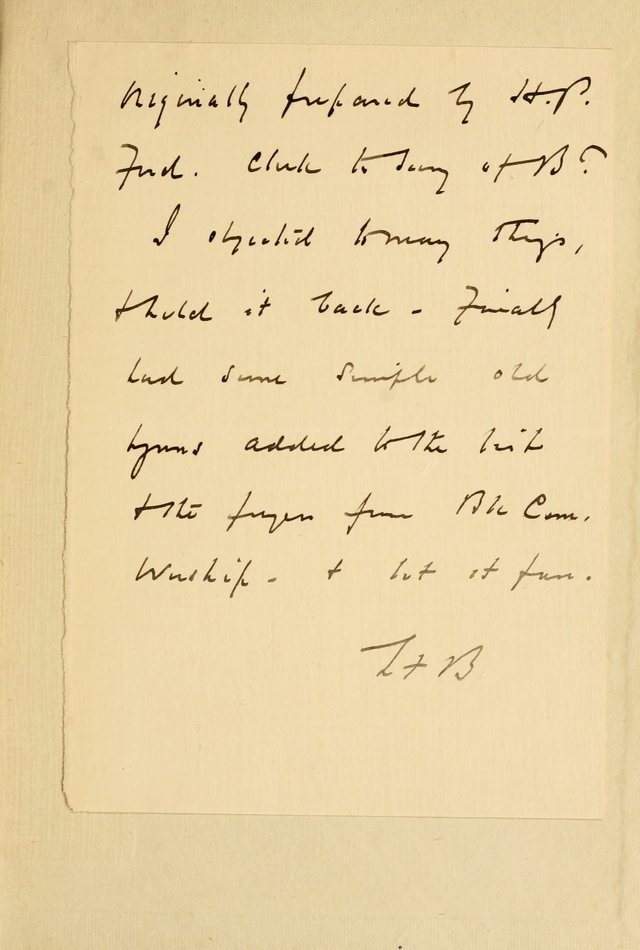 Originally prepared by H. P.
Ford. Clerk to Secy of B?
I objected to many things,
& held it back - Finally
had some simple old
hymns added to the list
& the prayers from Bk Com.
Worship - & let it pass.
L F B